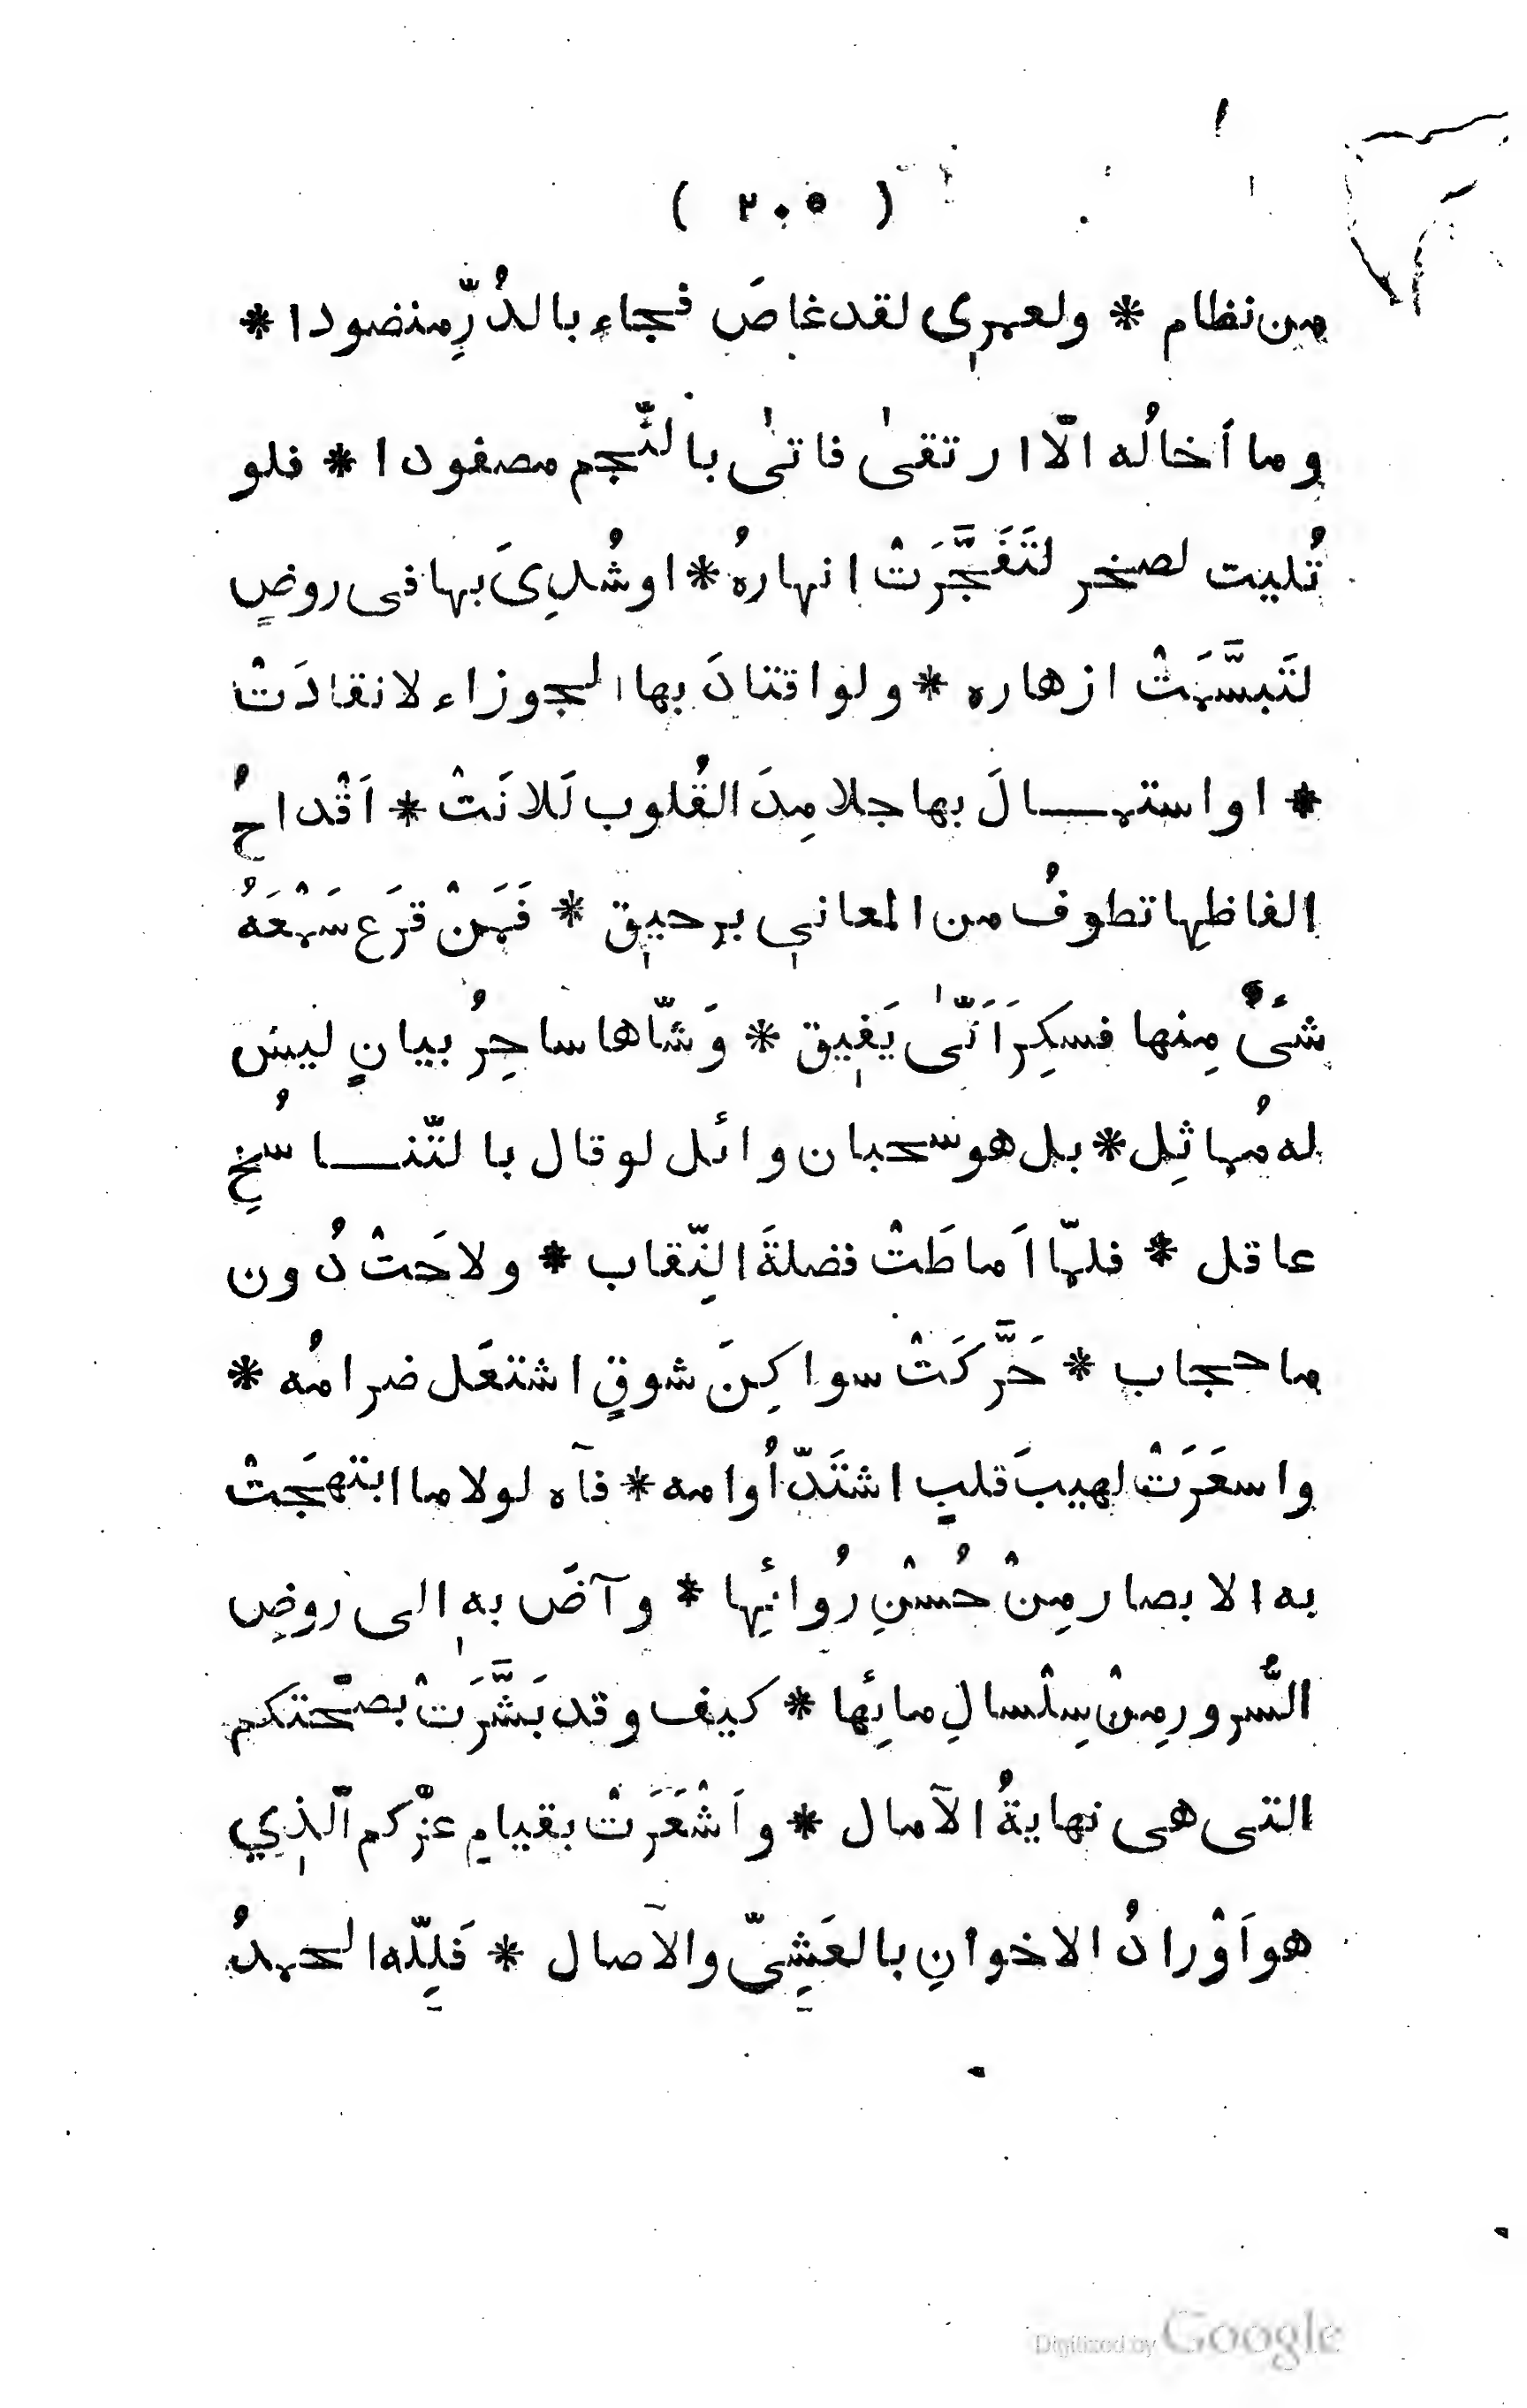 ( ٢٠٥ )
من نظام * ولعمرى لقد غاصَ فجاء بالدُرِّ منضودا *
وما أخالُه الّا ارتقىٰ فاتىٰ بالنّجم مصفودا * فلو
تُليت لصخر لتَفَجَّرَتْ انهارهُ * اوشُدِىَ بها فى روضٍ
لتَبسَّمَتْ ازهاره * ولو اقتادَ بها الجوزاء لانقادَتْ
* او استمالَ بها جلامِدَ القُلوب لَلانَتْ * اَقْداحُ
الفاظِها تطوفُ من المعانى برحيق * فَمَنْ قرَع سَمْعَهُ
شىءٌ مِنها فسكِرَ اَنّىٰ يَفيق * وَشّاها ساحِرُ بيانٍ ليسَ
له مُماثِل * بل هو سحبان وائل لو قال بالتّناسُخِ
عاقل * فلمّا اَماطَتْ فضلةَ النِّقاب * ولاحَتْ دُون
ما حجاب * حَرَّكَتْ سواكِنَ شوقٍ اشتعَل ضرامُه *
واسعَرَتْ لهيبَ قلبٍ اشتَدّ اُوامه * فآه لولا ما ابتهَجتْ
به الابصار مِنْ حُسْنِ رُوائِها * وآضَ به الى روضِ
السُّرور مِنْ سِلْسالِ مائِها * كيف وقد بَشَّرَتْ بصحّتكم
التى هى نهايةُ الآمال * واَشْعَرَتْ بقيامِ عزّكم الّذي
هو اَوْرادُ الاخوانِ بالعَشِىّ والآصال * فَلِلّه الحمدُ
Digitized by Google